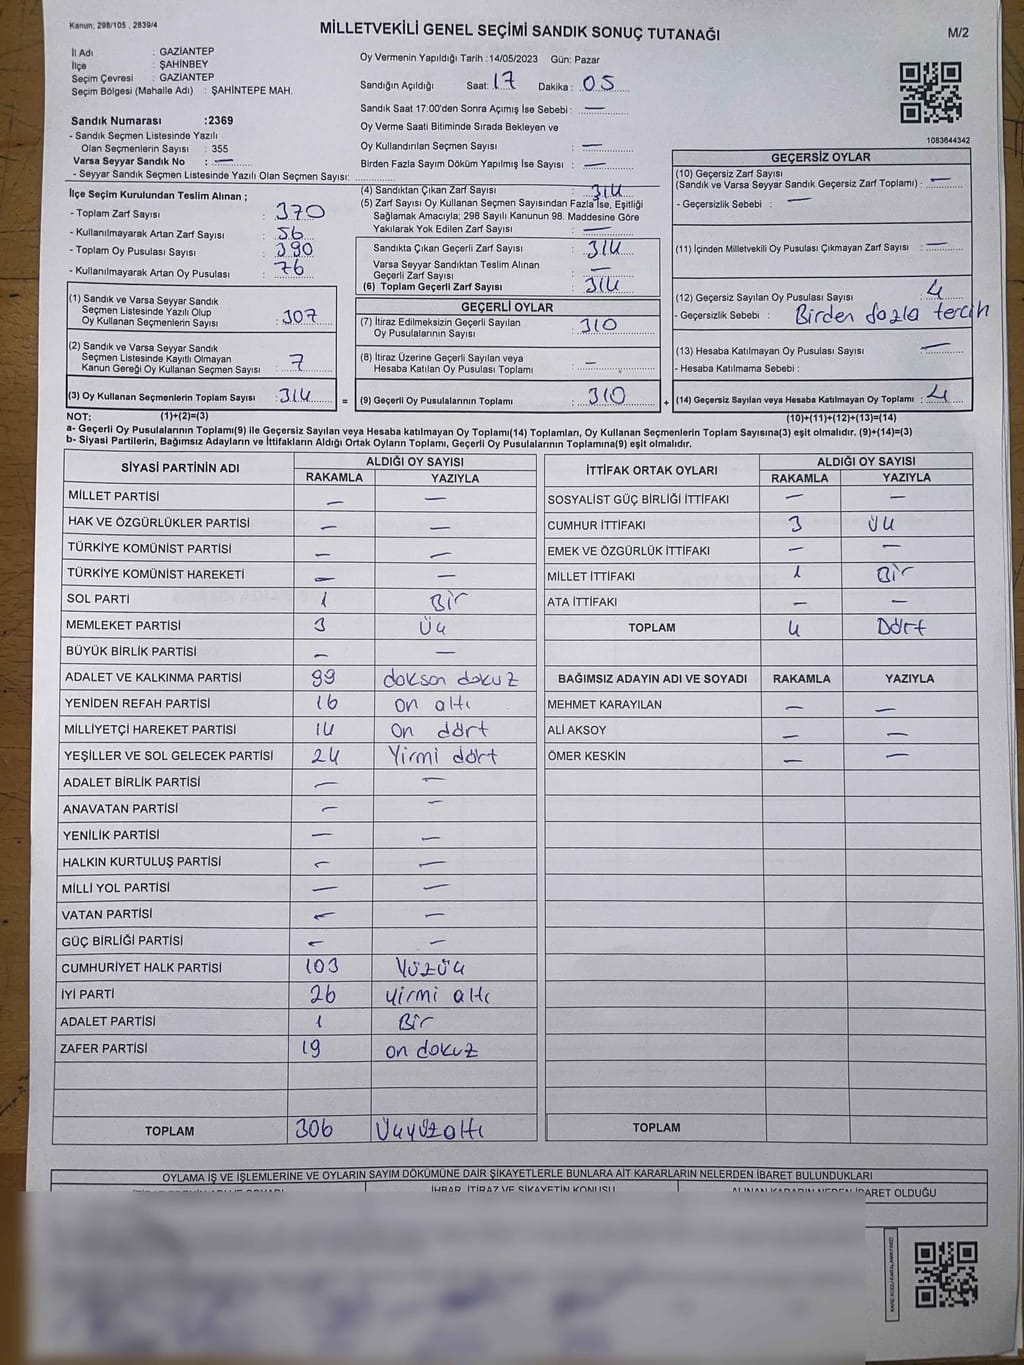 Kanun; 298/105 , 2839/4
MİLLETVEKİLİ GENEL SEÇİMİ SANDIK SONUÇ TUTANAĞI
M/2
İl Adı : GAZİANTEP
İlçe : ŞAHİNBEY
Seçim Çevresi : GAZİANTEP
Seçim Bölgesi (Mahalle Adı) : ŞAHİNTEPE MAH.
Oy Vermenin Yapıldığı Tarih :14/05/2023 Gün: Pazar
Sandığın Açıldığı Saat: 17 Dakika : 05
Sandık Saat 17:00'den Sonra Açımış İse Sebebi : —
Oy Verme Saati Bitiminde Sırada Bekleyen ve
Oy Kullandırılan Seçmen Sayısı : —
Birden Fazla Sayım Döküm Yapılmış İse Sayısı : —
1083644342
Sandık Numarası :2369
- Sandık Seçmen Listesinde Yazılı
Olan Seçmenlerin Sayısı : 355
Varsa Seyyar Sandık No : —
- Seyyar Sandık Seçmen Listesinde Yazılı Olan Seçmen Sayısı:
İlçe Seçim Kurulundan Teslim Alınan ;
- Toplam Zarf Sayısı : 370
- Kullanılmayarak Artan Zarf Sayısı : 56
- Toplam Oy Pusulası Sayısı : 390
- Kullanılmayarak Artan Oy Pusulası : 76
(1) Sandık ve Varsa Seyyar Sandık
Seçmen Listesinde Yazılı Olup
Oy Kullanan Seçmenlerin Sayısı : 307
(2) Sandık ve Varsa Seyyar Sandık
Seçmen Listesinde Kayıtlı Olmayan
Kanun Gereği Oy Kullanan Seçmen Sayısı : 7
(3) Oy Kullanan Seçmenlerin Toplam Sayısı : 314 =
(4) Sandıktan Çıkan Zarf Sayısı : 314
(5) Zarf Sayısı Oy Kullanan Seçmen Sayısından Fazla İse, Eşitliği
Sağlamak Amacıyla; 298 Sayılı Kanunun 98. Maddesine Göre
Yakılarak Yok Edilen Zarf Sayısı : —
Sandıkta Çıkan Geçerli Zarf Sayısı : 314
Varsa Seyyar Sandıktan Teslim Alınan
Geçerli Zarf Sayısı : —
(6) Toplam Geçerli Zarf Sayısı : 314
GEÇERLİ OYLAR
(7) İtiraz Edilmeksizin Geçerli Sayılan
Oy Pusulalarının Sayısı : 310
(8) İtiraz Üzerine Geçerli Sayılan veya
Hesaba Katılan Oy Pusulası Toplamı : —
(9) Geçerli Oy Pusulalarının Toplamı : 310 +
GEÇERSİZ OYLAR
(10) Geçersiz Zarf Sayısı
(Sandık ve Varsa Seyyar Sandık Geçersiz Zarf Toplamı) : —
- Geçersizlik Sebebi : —
(11) İçinden Milletvekili Oy Pusulası Çıkmayan Zarf Sayısı : —
(12) Geçersiz Sayılan Oy Pusulası Sayısı : 4
- Geçersizlik Sebebi : Birden fazla tercih
(13) Hesaba Katılmayan Oy Pusulası Sayısı : —
- Hesaba Katılmama Sebebi :
(14) Geçersiz Sayılan veya Hesaba Katılmayan Oy Toplamı : 4
NOT: (1)+(2)=(3)
(10)+(11)+(12)+(13)=(14)
a- Geçerli Oy Pusulalarının Toplamı(9) ile Geçersiz Sayılan veya Hesaba Katılmayan Oy Toplamı(14) Toplamları, Oy Kullanan Seçmenlerin Toplam Sayısına(3) eşit olmalıdır. (9)+(14)=(3)
b- Siyasi Partilerin, Bağımsız Adayların ve İttifakların Aldığı Ortak Oyların Toplamı, Geçerli Oy Pusulalarının Toplamına(9) eşit olmalıdır.
SİYASİ PARTİNİN ADI
ALDIĞI OY SAYISI
RAKAMLA YAZIYLA
MİLLET PARTİSİ — —
HAK VE ÖZGÜRLÜKLER PARTİSİ — —
TÜRKİYE KOMÜNİST PARTİSİ — —
TÜRKİYE KOMÜNİST HAREKETİ — —
SOL PARTİ 1 Bir
MEMLEKET PARTİSİ 3 Üç
BÜYÜK BİRLİK PARTİSİ — —
ADALET VE KALKINMA PARTİSİ 99 doksan dokuz
YENİDEN REFAH PARTİSİ 16 on altı
MİLLİYETÇİ HAREKET PARTİSİ 14 on dört
YEŞİLLER VE SOL GELECEK PARTİSİ 24 Yirmi dört
ADALET BİRLİK PARTİSİ — —
ANAVATAN PARTİSİ — —
YENİLİK PARTİSİ — —
HALKIN KURTULUŞ PARTİSİ — —
MİLLİ YOL PARTİSİ — —
VATAN PARTİSİ — —
GÜÇ BİRLİĞİ PARTİSİ — —
CUMHURİYET HALK PARTİSİ 103 Yüzüç
İYİ PARTİ 26 yirmi altı
ADALET PARTİSİ 1 Bir
ZAFER PARTİSİ 19 on dokuz
TOPLAM 306 Üçyüzaltı
İTTİFAK ORTAK OYLARI
ALDIĞI OY SAYISI
RAKAMLA YAZIYLA
SOSYALİST GÜÇ BİRLİĞİ İTTİFAKI — —
CUMHUR İTTİFAKI 3 Üç
EMEK VE ÖZGÜRLÜK İTTİFAKI — —
MİLLET İTTİFAKI 1 Bir
ATA İTTİFAKI — —
TOPLAM 4 Dört
BAĞIMSIZ ADAYIN ADI VE SOYADI RAKAMLA YAZIYLA
MEHMET KARAYILAN — —
ALİ AKSOY — —
ÖMER KESKİN — —
TOPLAM
OYLAMA İŞ VE İŞLEMLERİNE VE OYLARIN SAYIM DÖKÜMÜNE DAİR ŞİKAYETLERLE BUNLARA AİT KARARLARIN NELERDEN İBARET BULUNDUKLARI
İHBAR, İTİRAZ VE ŞİKAYETİN KONUSU
ALINAN KARARIN NEDEN İBARET OLDUĞU